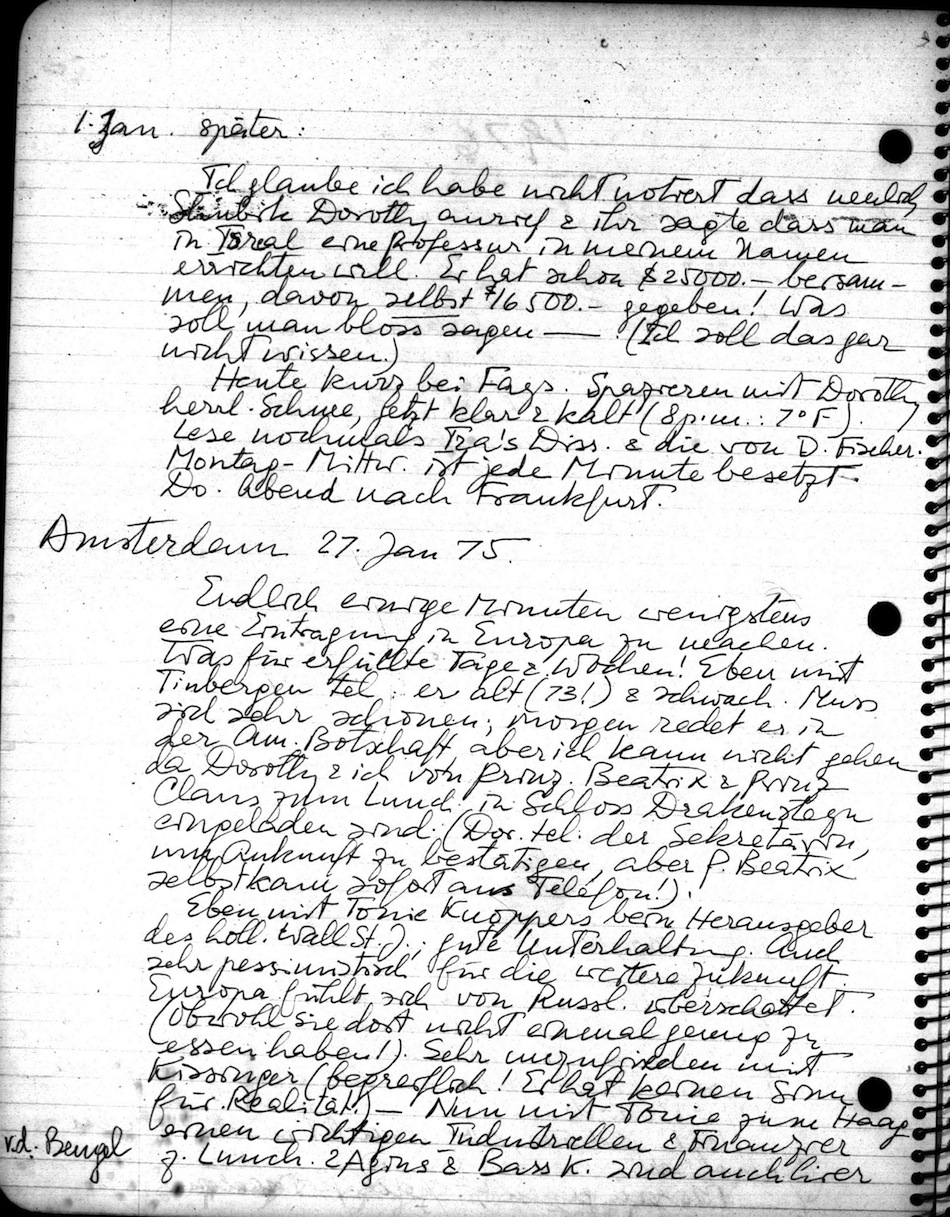 1. Jan. später:
Ich glaube ich habe nicht notiert dass neulich
Dorothy anrief & ihr sagte dass man
in Isreal eine Professur in meinem Namen
errichten will. Er hat schon $25000.— beisam-
men, davon selbst $16500.- gegeben! Was
soll man bloss sagen — . (Ich soll das gar
nicht wissen.)
Heute kurz bei Fags. Spazieren mit Dorothy,
herrl. Schnee, jetzt klar & kalt (8 p.m.: 7° F).
Lese nochmals Ira's Diss. & die von D. Fischer.
Montag - Mittw. ist jede Minute besetzt.
Do. Abend nach Frankfurt.
Amsterdam 27. Jan 75.
Endlich einige Minuten wenigstens
eine Eintragung in Europa zu machen.
Was für erfüllte Tage & Wochen! Eben mit
Tinbergen tel. er alt (73!) & schwach. Muss
sich sehr schonen; morgen redet er in
der Am. Botschaft aber ich kann nicht gehen
da Dorothy & ich von Prinz. Beatrix & Prinz
Claus zum Lunch in Schloss Drakensteyn
eingeladen sind. (Dor. tel. der Sekretärin,
um Ankunft zu bestätigen, aber P. Beatrix
selbst kam sofort ans Telefon!).
Eben mit Tonie Knoppers beim Herausgeber
des holl. Wall St. J.; gute Unterhaltung. Auch
sehr pessimistisch für die weitere Zukunft.
Europa fühlt sich von Russl. überschattet.
(Obwohl sie dort nicht einmal genug zu
essen haben!). Sehr unzufrieden mit
Kissinger (begreiflich! Er hat keinen Sinn
für Realität.) — Nun mit Tonie zum Haag
v.d. Beugel
einen wichtigen Industriellen & Finanzier
z. Lunch. & Agins & Bass K. sind auch hier